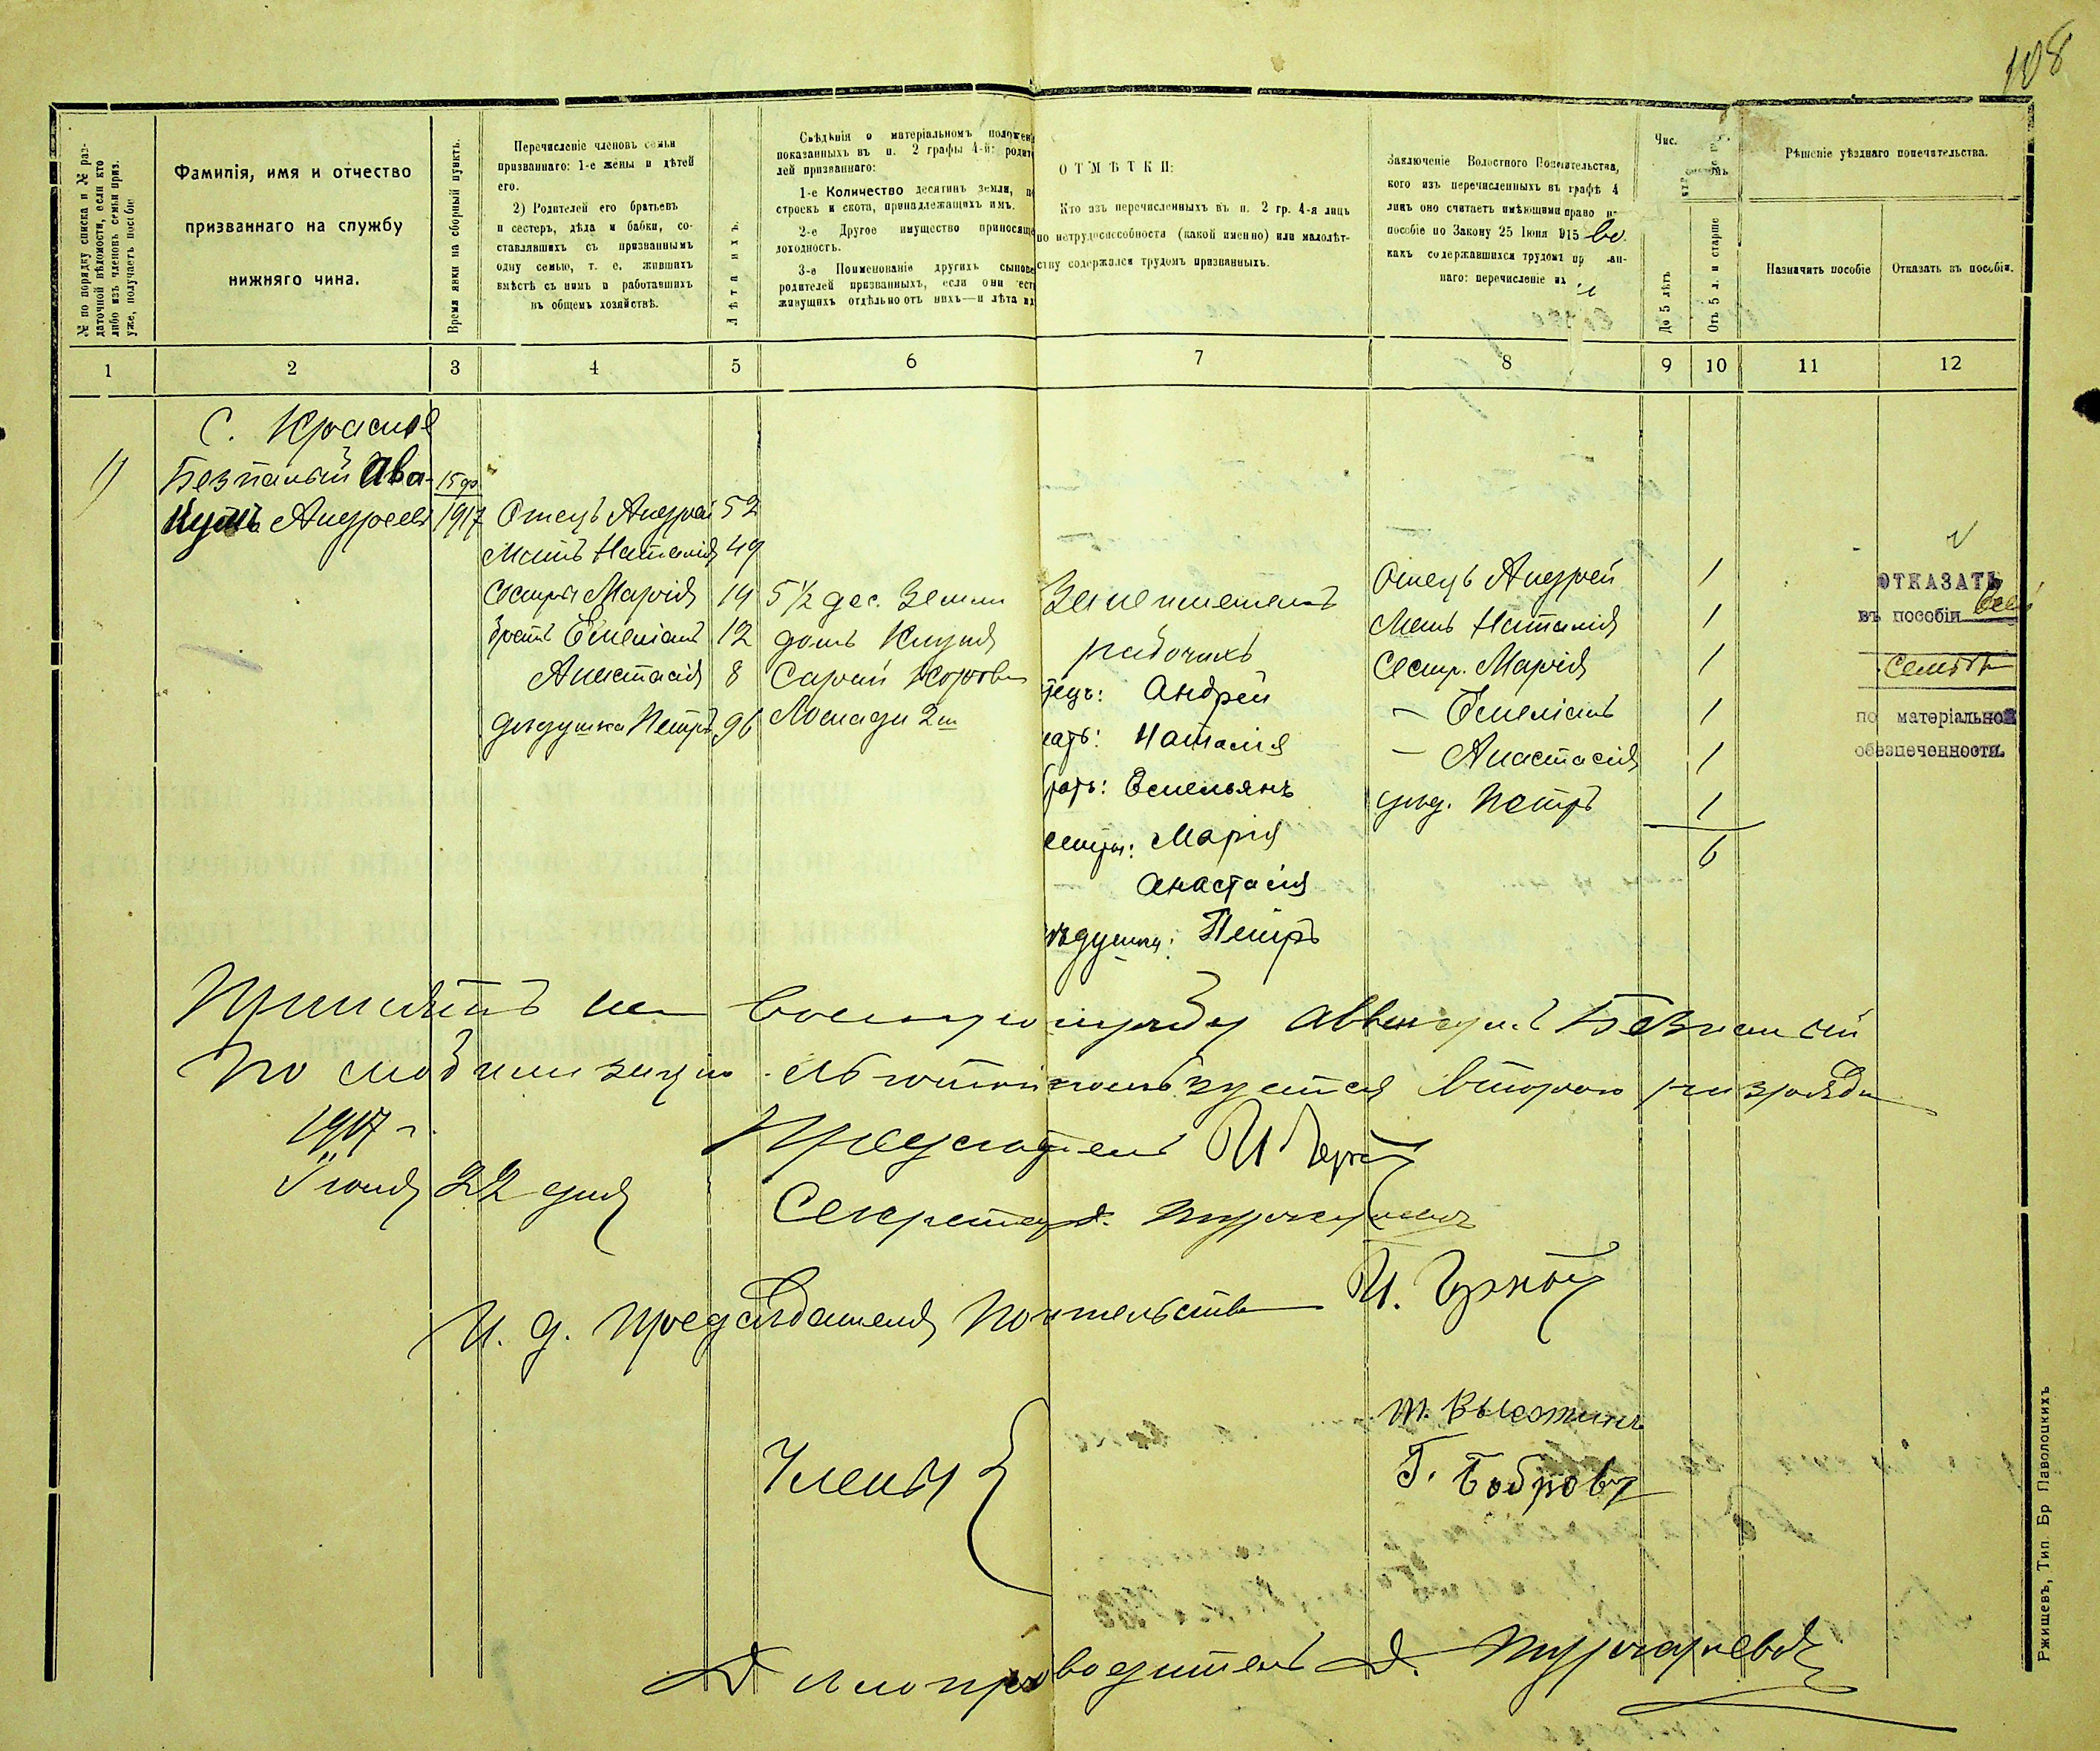 108
№ по порядку списка и № раз-
даточной вѣдомости, если кто
либо изъ членовъ семьи приз.
уже, получаетъ пособіе
Фамилія, имя и отчество
призваннаго на службу
нижняго чина.
Время явки на сборный пунктъ.
Перечисленіе членовъ семьи
призваннаго: 1-е жены и дѣтей
его.
2) Родителей его братьевъ
и сестеръ, дѣда и бабки, со-
ставлявшихъ съ призваннымъ
одну семью, т. е. жившихъ
вмѣстѣ съ нимъ и работавшихъ
въ общемъ хозяйствѣ.
Лѣта ихъ.
Свѣдѣнія о матеріальномъ положен
показанныхъ въ п. 2 графы 4-й: родит
лей призваннаго:
1-е Количество десятинъ земли, п
строекъ и скота, принадлежащихъ имъ.
2-е Другое имущество приносяще
доходность.
3-е Поименованіе другихъ сынове
родителей призванныхъ, если они ест
живущихъ отдѣльно отъ нихъ—и лѣта их
ОТМѢТКИ:
Кто изъ перечисленныхъ въ п. 2 гр. 4-я лицъ
по нетрудоспособности (какой именно) или малолѣт-
ству содержался трудомъ призванныхъ.
Заключеніе Волостного Попечительства,
кого изъ перечисленныхъ въ графѣ 4
лицъ оно считаетъ имѣющими право н
пособіе по Закону 25 Іюня 1915
какъ содержавшихся трудомъ пр ан-
наго: перечисленіе их
Чис.
До 5 лѣтъ
Отъ 5 л. и старше
Рѣшеніе уѣзднаго попечительства.
Назначить пособіе
Отказать въ пособіи.
1 2 3 4 5 6 7 8 9 10 11 12
С. Красное
1) Безпалый Ава-
кумъ Андреевъ
15 ф
1917
Отецъ Андрей 52
Мать Наталія 49
Сестра Марія 14
братъ Емеліанъ 12
Анастасія 8
дѣдушка Петръ 96
5 1/2 дес. Земли
домъ Клуня
Сарай Корова
Лошади 2 ш
рабочихъ
тецъ: Андрей
мать: Наталія
братъ: Емельянъ
сестры: Марія
Анастасія
дѣдушка: Петръ
Отецъ Андрей 1
Мать Наталія 1
Сестр. Марія 1
— Емеліанъ 1
— Анастасія 1
дѣд. Петръ 1
6
ОТКАЗАТЬ
въ пособіи всей
семьѣ
по матеріальной
обезпеченности.
Принятъ на Военную службу Аввакумъ Безпалый
По мобилизаціи льготой пользуется второго разряда
1917 г.
Іюня 22 дня
Предсѣдатель И
Секретарь
И. д. Предсѣдателя Попечительства И.
Члены
Г. Бобровъ
Дѣлопроизводитель Д.
Ржищевъ, Тип. Бр Паволоцкихъ